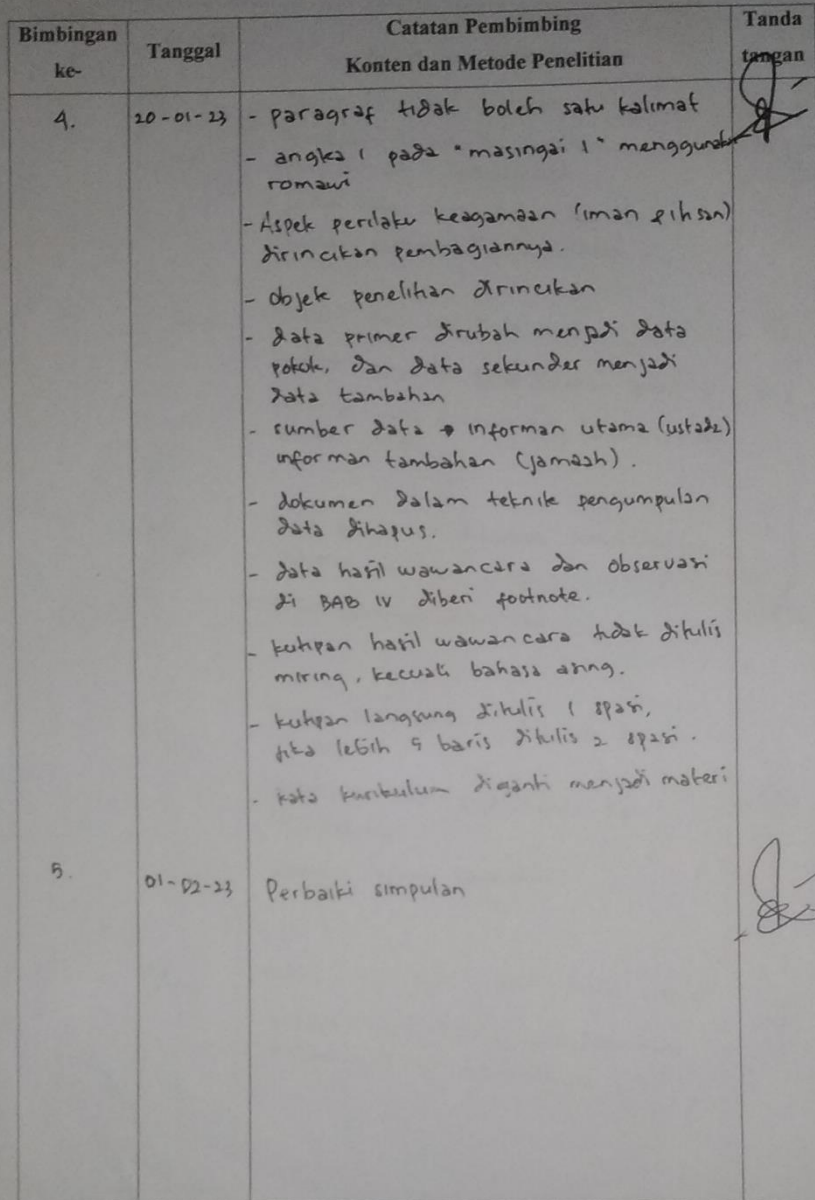 Bimbingan ke-
Tanggal
Catatan Pembimbing
Konten dan Metode Penelitian
Tanda tangan
4.
20-01-23
- paragraf tidak boleh satu kalimat
- angka 1 pada "masingai 1" menggunakan
romawi
- Aspek perilaku keagamaan (iman & ihsan)
dirincikan pembagiannya.
- objek penelitian dirincikan
- data primer dirubah menjadi data
pokok, dan data sekunder menjadi
data tambahan
- sumber data → informan utama (ustadz)
informan tambahan (jamaah).
- dokumen dalam teknik pengumpulan
data dihapus.
- data hasil wawancara dan observasi
di BAB IV diberi footnote.
- kutipan hasil wawancara tidak ditulis
miring, kecuali bahasa asing.
- kutipan langsung ditulis 1 spasi,
jika lebih 5 baris ditulis 2 spasi.
- kata kurikulum diganti menjadi materi
5.
01-02-23
Perbaiki simpulan